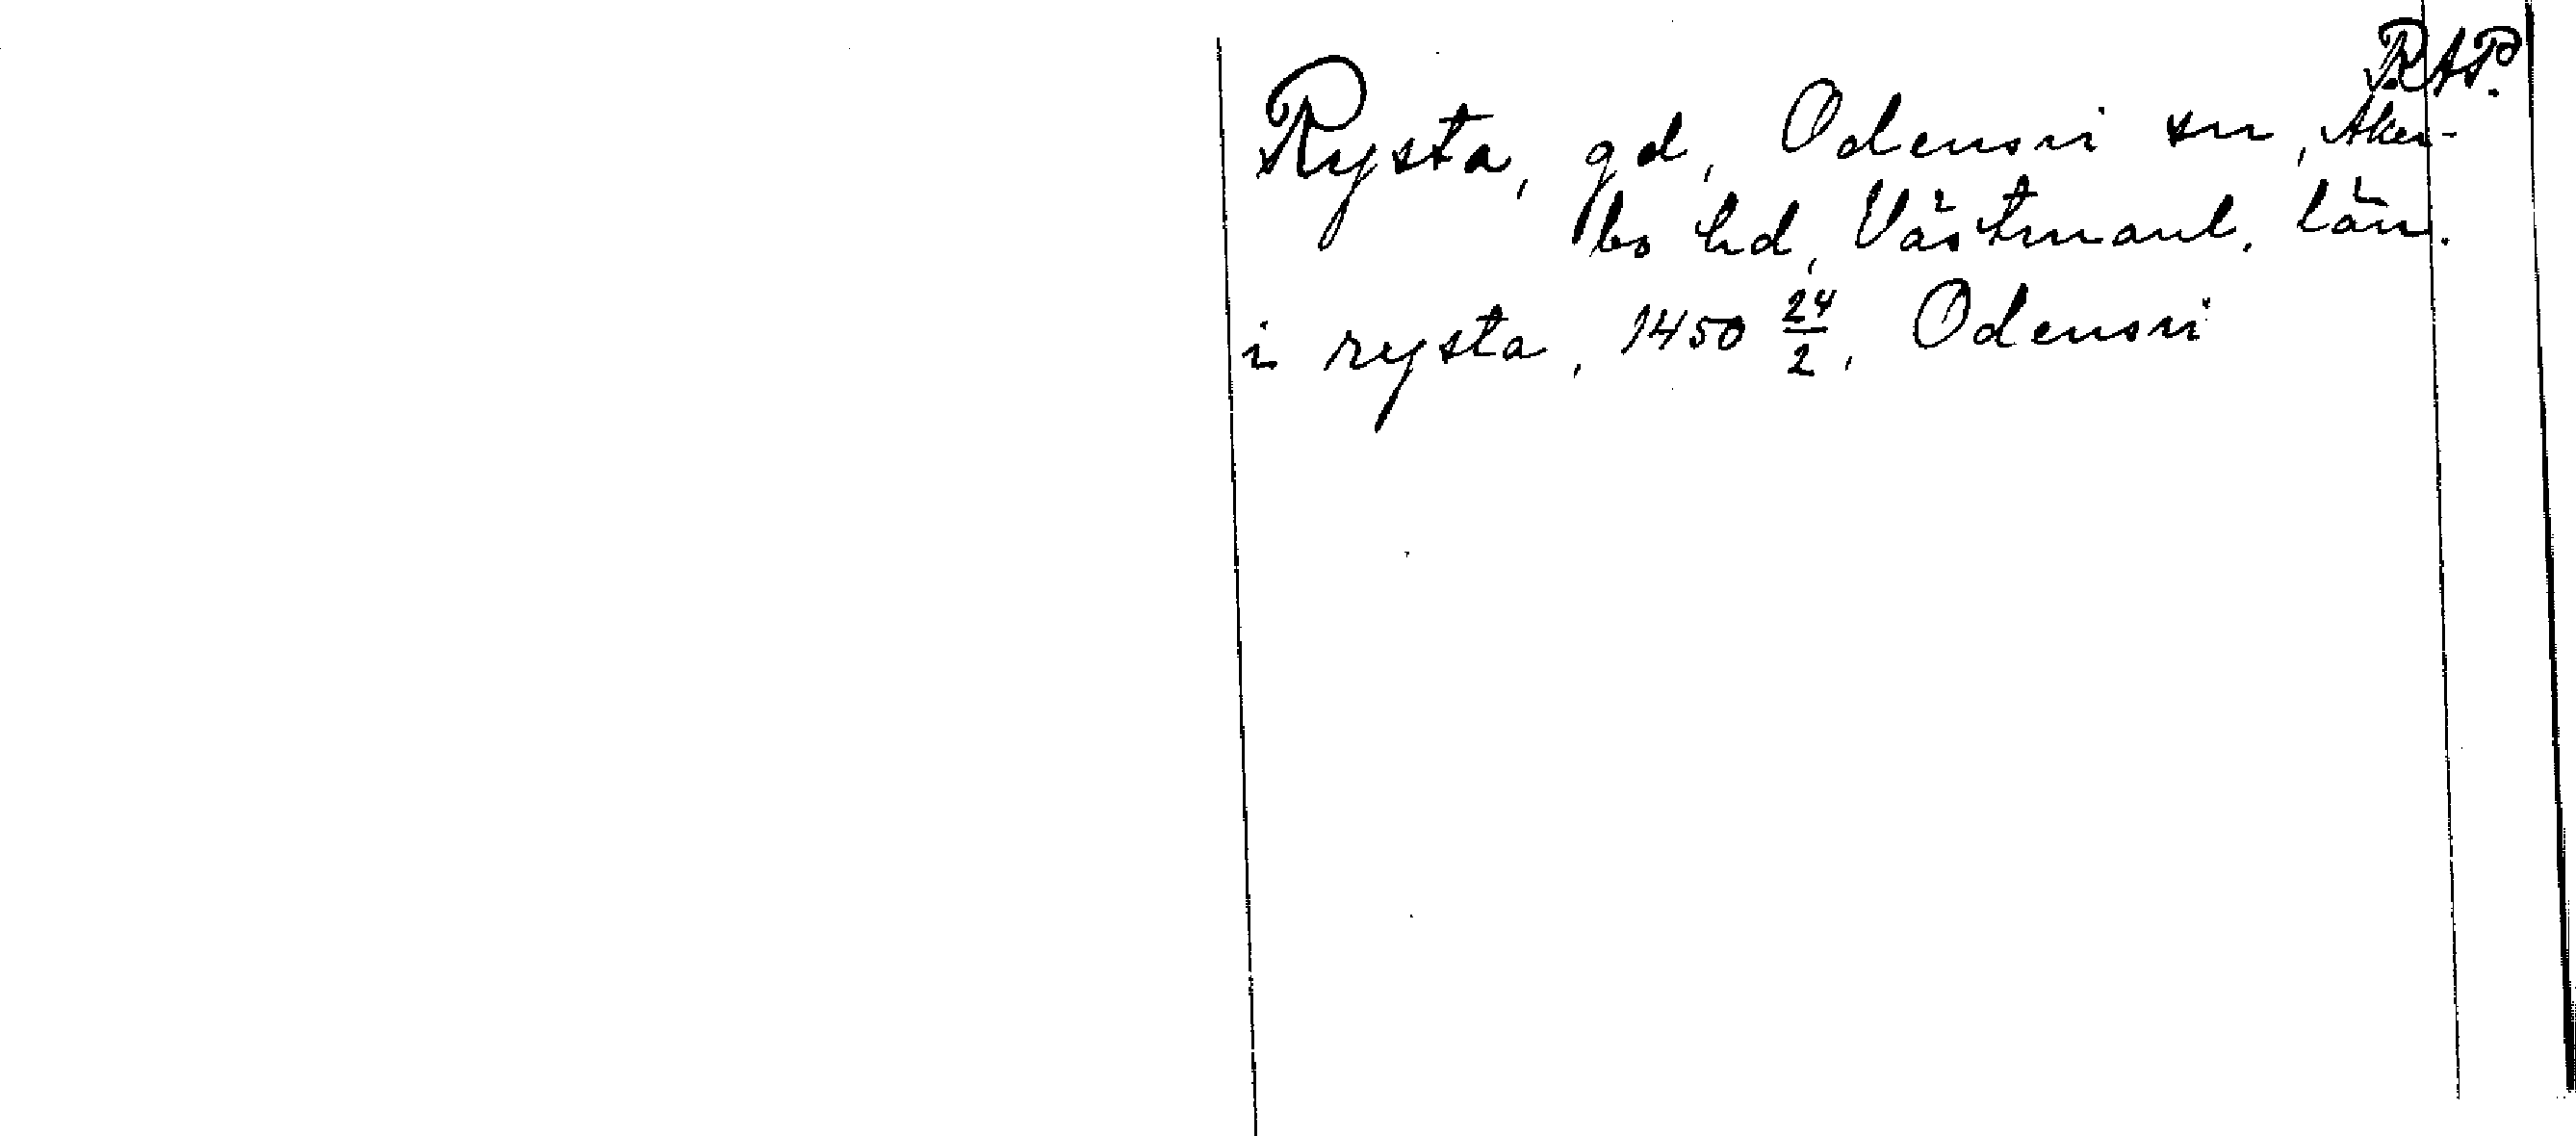 RAP.
Rysta, gd, Odensvi sn, Åker-
bo hd, Västmanl. län.
i rysta, 1450 24/2, Odensvi